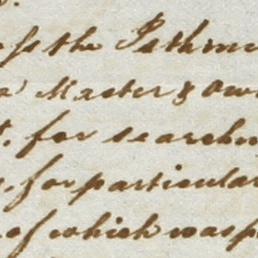 the Isthmu
Master & Own
for searchin
for particular
of which was p